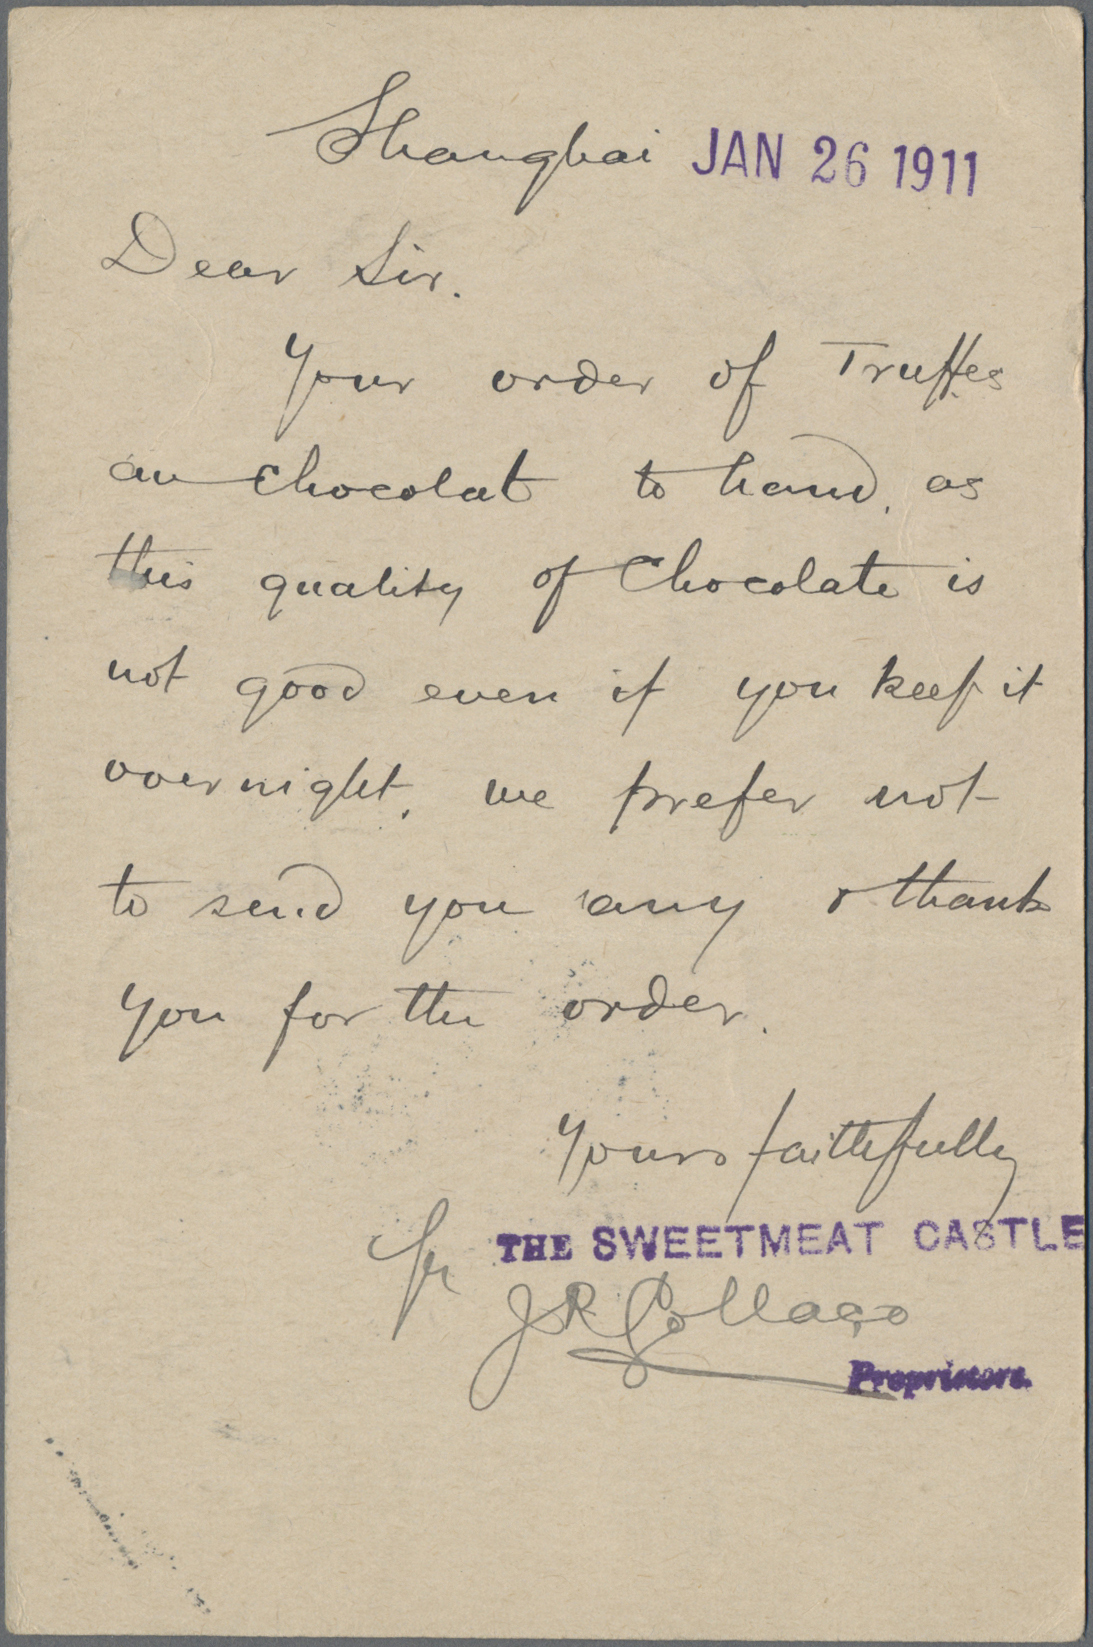 Shanghai JAN 26 1911
Dear Sir.
Your order of Truffes
au chocolat to hand, as
this quality of Chocolate is
not good even if you keep it
overnight, we prefer not
to send you any & thank
you for the order.
Yours faithfully
for THE SWEETMEAT CASTLE
J R Collaço
Proprietors.